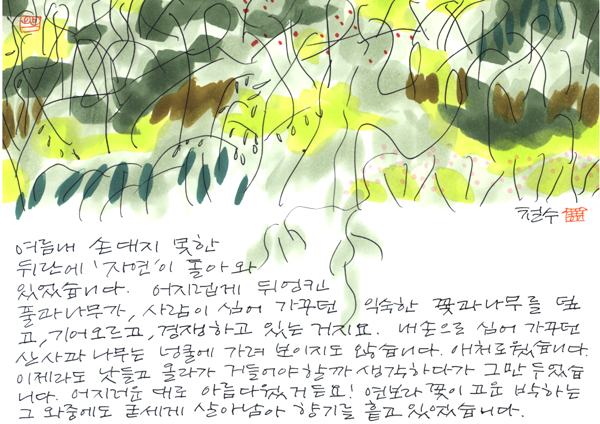 철수
여름내 손대지 못한
뒤란에 '자연'이 돌아와
있었습니다. 어지럽게 뒤엉킨
풀과 나무가, 사람이 심어 가꾸던 익숙한 꽃과 나무를 덮
고, 기어오르고, 경쟁하고 있는 거지요. 내 손으로 심어 가꾸던
산사과 나무는 넝쿨에 가려 보이지도 않습니다. 애처로웠습니다.
이제라도 낫들고 올라가 거들어야 할까 생각하다가 그만 두었습
니다. 어지러운 대로 아름다웠거든요! 연보라 꽃이 고운 박하는
그 와중에도 굳세게 살아남아 향기를 흩고 있었습니다.